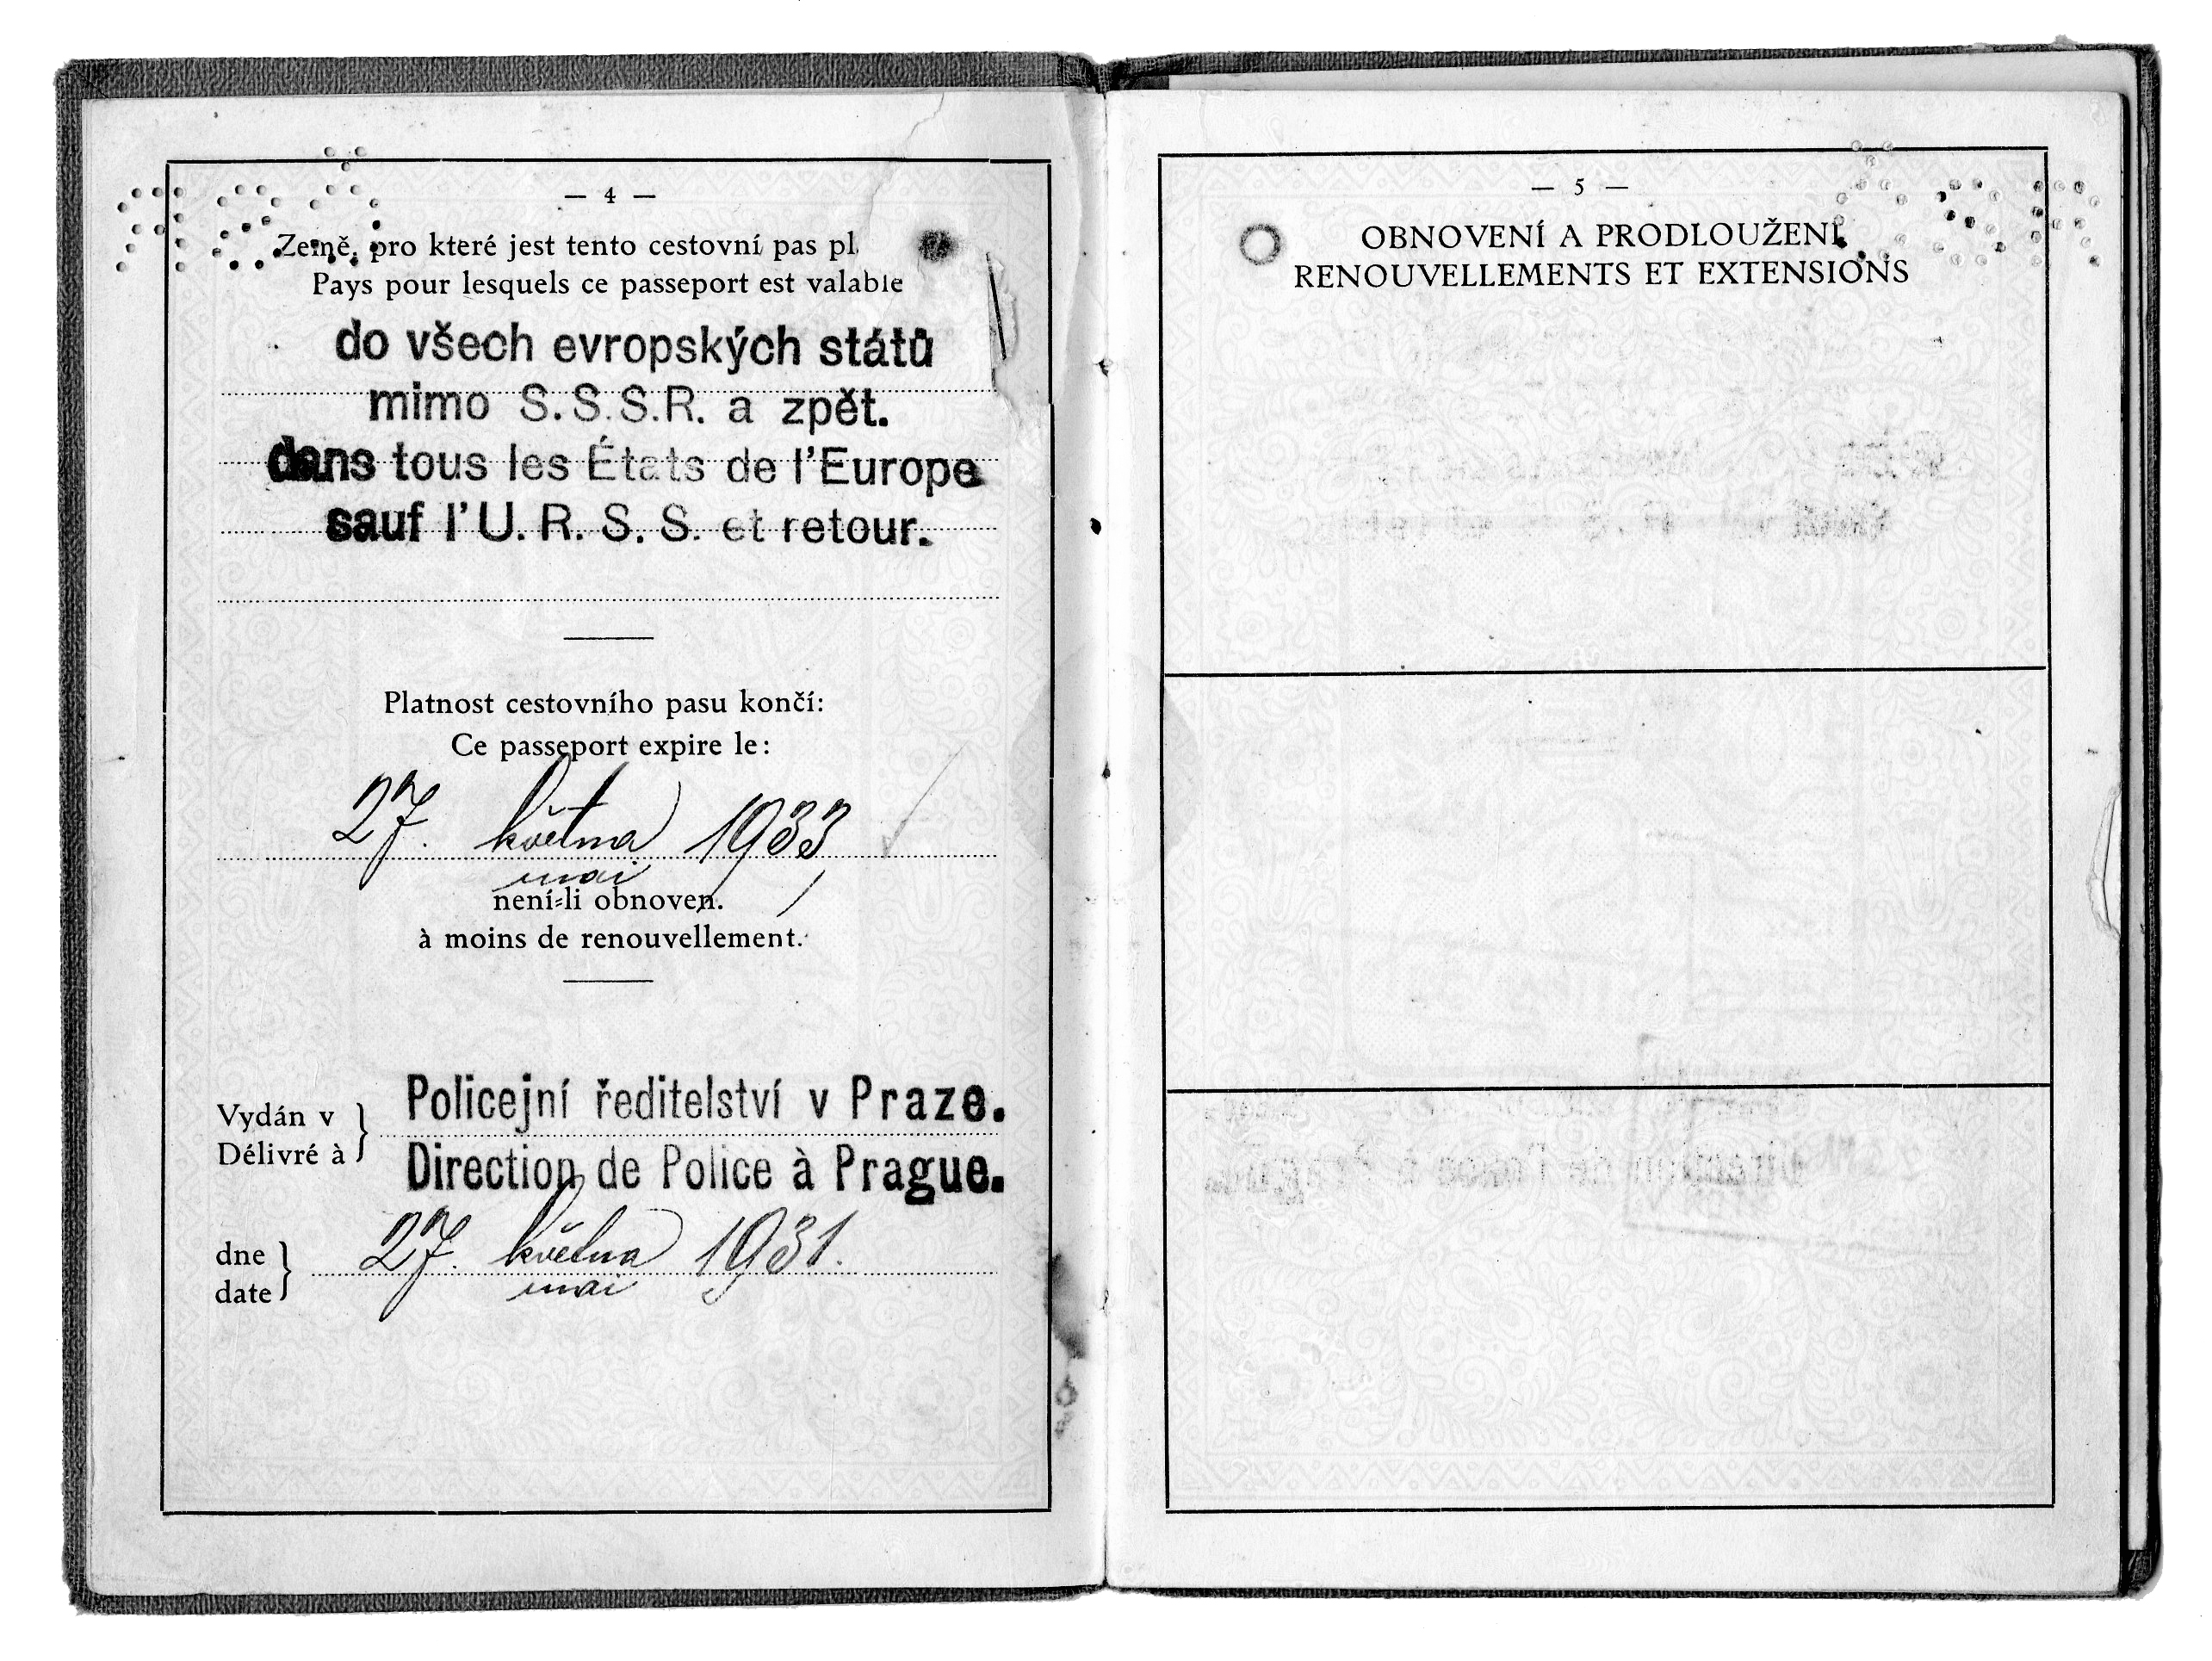 — 4 —
Země, pro které jest tento cestovní pas pl
Pays pour lesquels ce passeport est valable
do všech evropských států
mimo S.S.S.R. a zpět.
dans tous les États de l'Europe
sauf l'U.R.S.S. et retour.
Platnost cestovního pasu končí:
Ce passeport expire le:
27. května 1933
mai
není-li obnoven.
à moins de renouvellement.
Vydán v } Policejní ředitelství v Praze.
Délivré à } Direction de Police à Prague.
dne } 27. května 1931.
date } mai
— 5 —
OBNOVENÍ A PRODLOUŽENÍ
RENOUVELLEMENTS ET EXTENSIONS